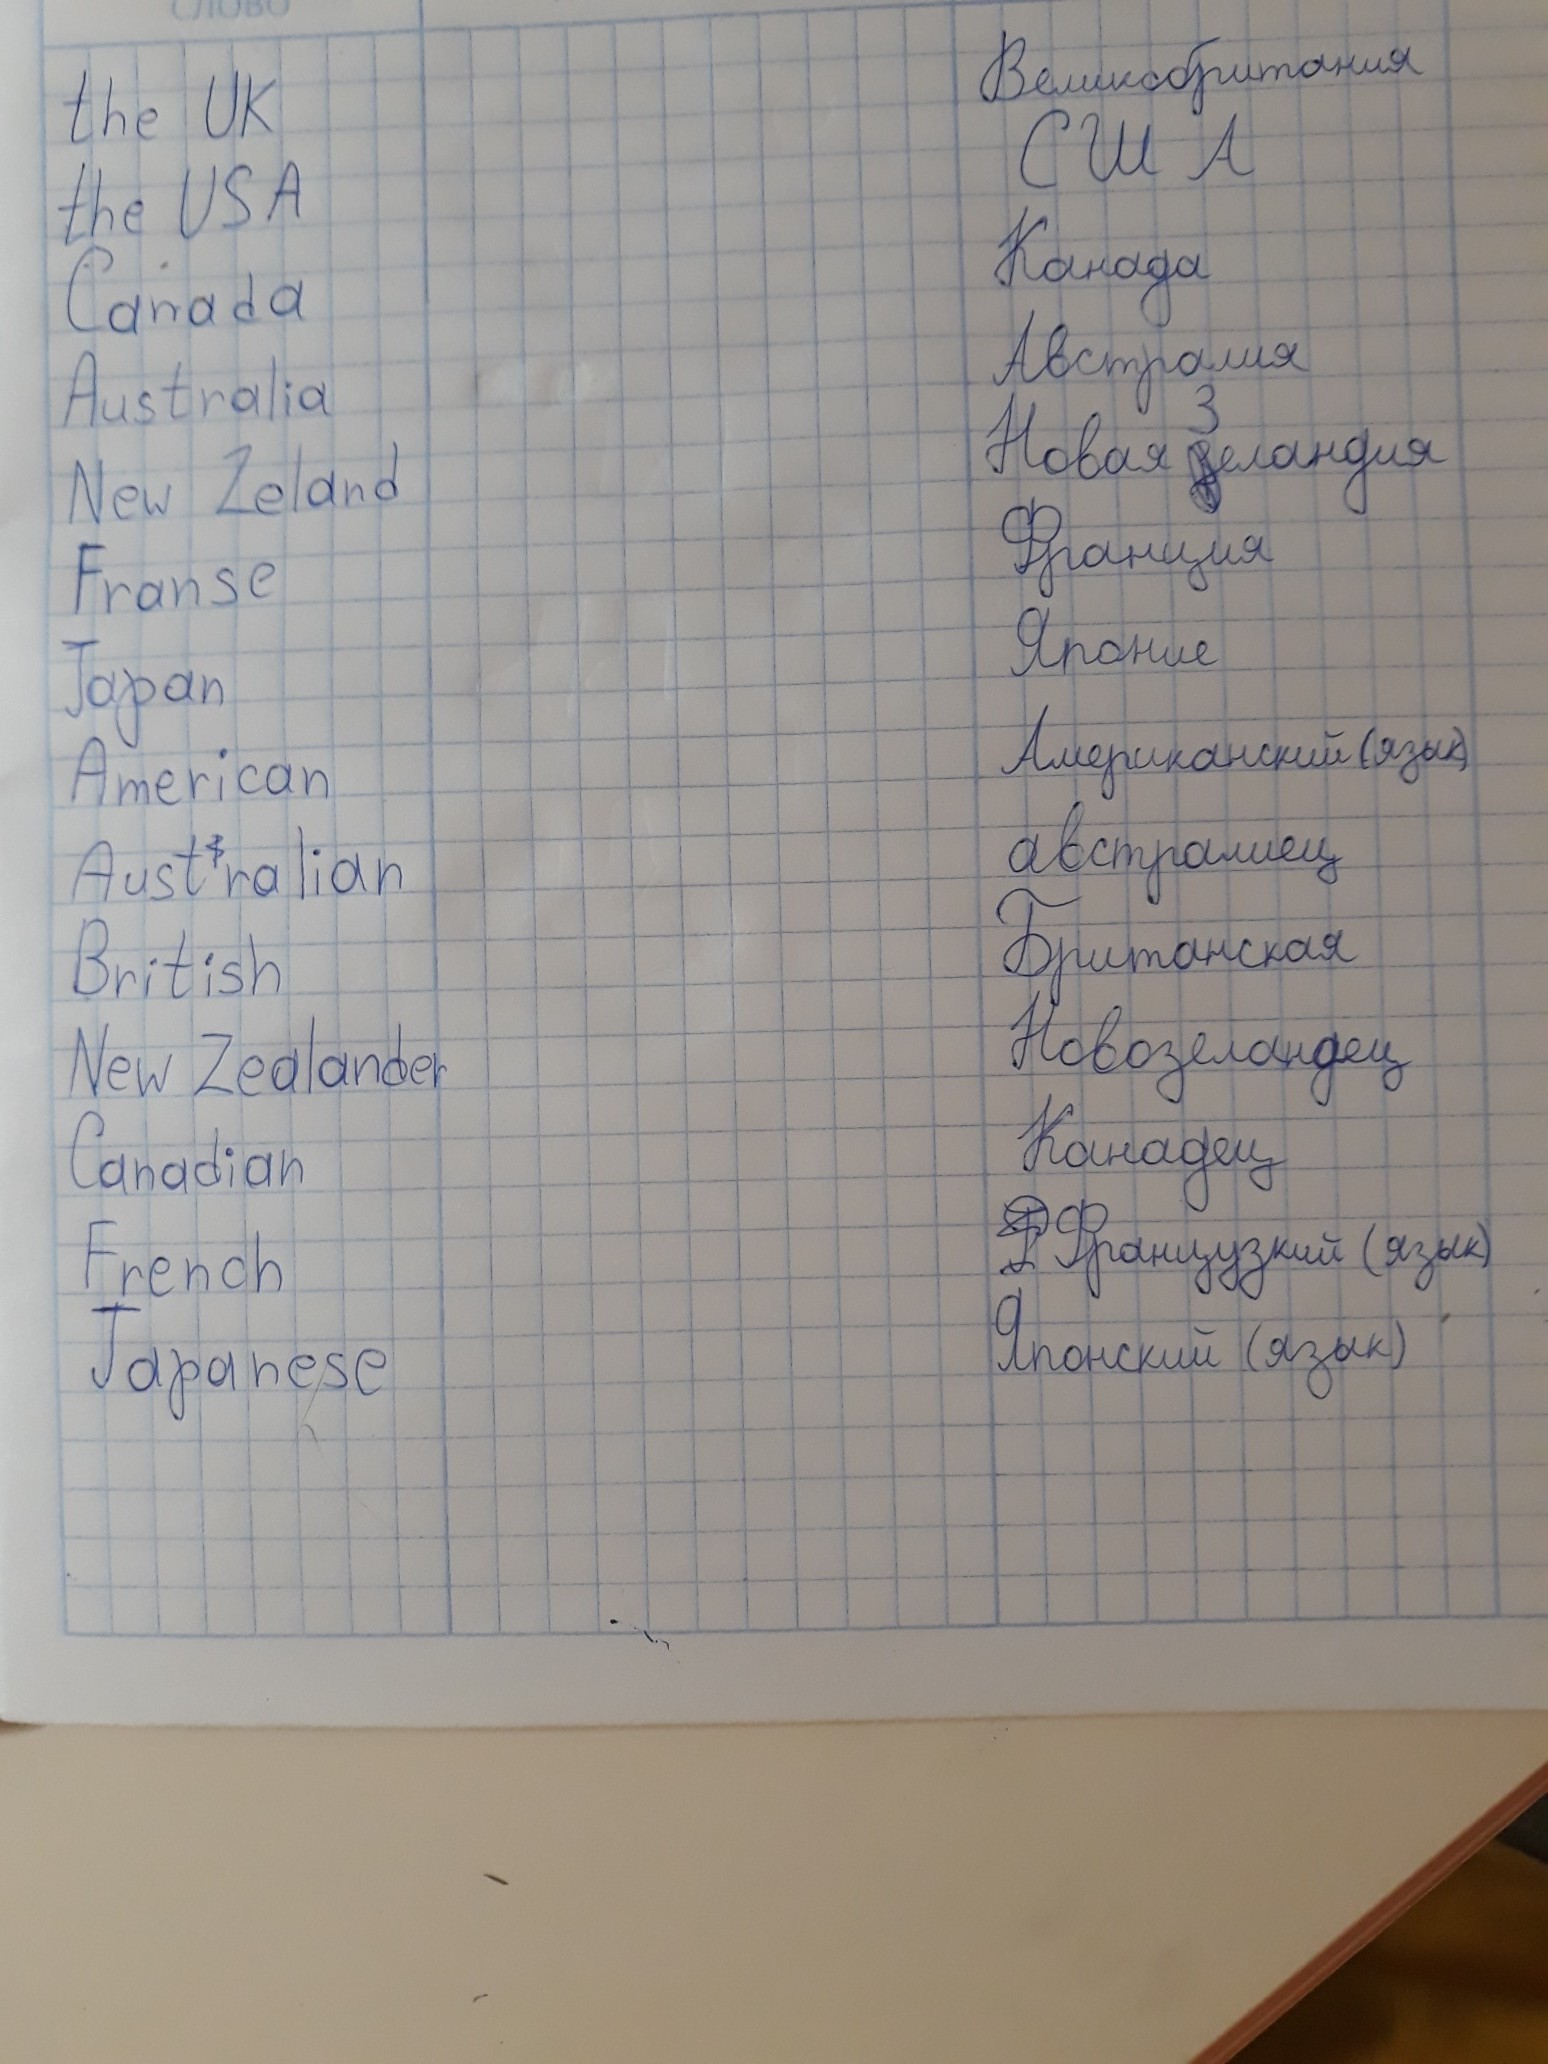 СЛОВО
the UK Великобритания
the USA США
Canada Канада
Australia Австралия
New Zeland Новая Зеландия
Franse Франция
Japan Японие
American Американский (язык)
Australian австралиец
British Британская
New Zealander Новозеландец
Canadian Канадец
French Французкий (язык)
Japanese Японский (язык)